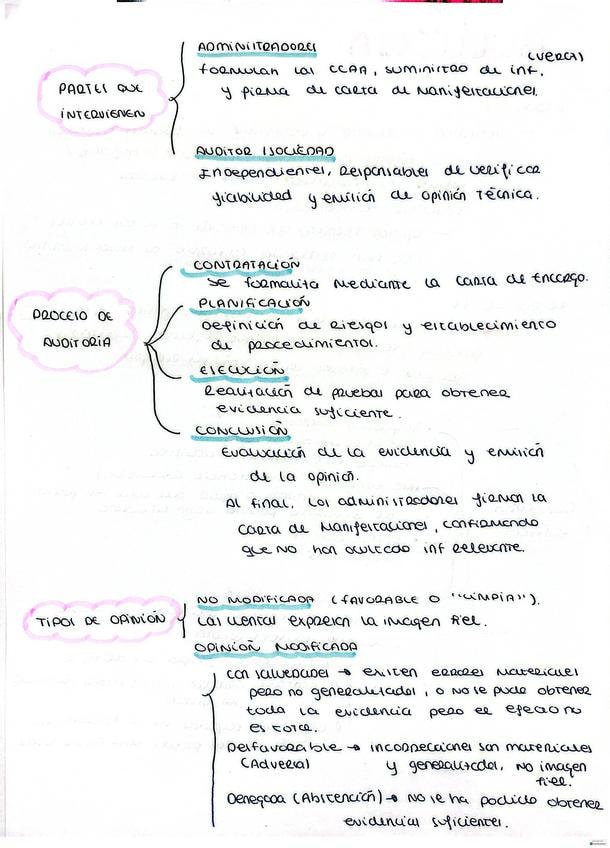 ADMINISTRADORES
(VERCA)
formulan las CCAA, suministro de inf.
y firma de carta de Manifestaciones.
PARTES QUE
INTERVIENEN
AUDITOR / SOCIEDAD
Independientes, Responsables de verificar
fiabilidad y emisión de opinión técnica.
CONTRATACIÓN
Se formaliza mediante la carta de Encargo.
PLANIFICACIÓN
Definición de riesgos y establecimiento
de procedimientos.
PROCESO DE
AUDITORÍA
EJECUCIÓN
Realización de pruebas para obtener
evidencia suficiente.
CONCLUSIÓN
Evaluación de la evidencia y emisión
de la opinión.
Al final, los administradores firman la
carta de Manifestaciones, confirmando
que no han ocultado inf relevante.
TIPOS DE OPINIÓN
NO MODIFICADA (FAVORABLE O "LIMPIA").
Las cuentas expresan la imagen fiel.
OPINIÓN MODIFICADA
Con salvedades → existen errores materiales
pero no generalizados, o no se pude obtener
toda la evidencia pero el efecto no
es total.
Desfavorable → incorrecciones son materiales
(Adversa) y generalizadas, no imagen
fiel.
Denegada (Abstención) → No se ha podido obtener
evidencias suficientes.